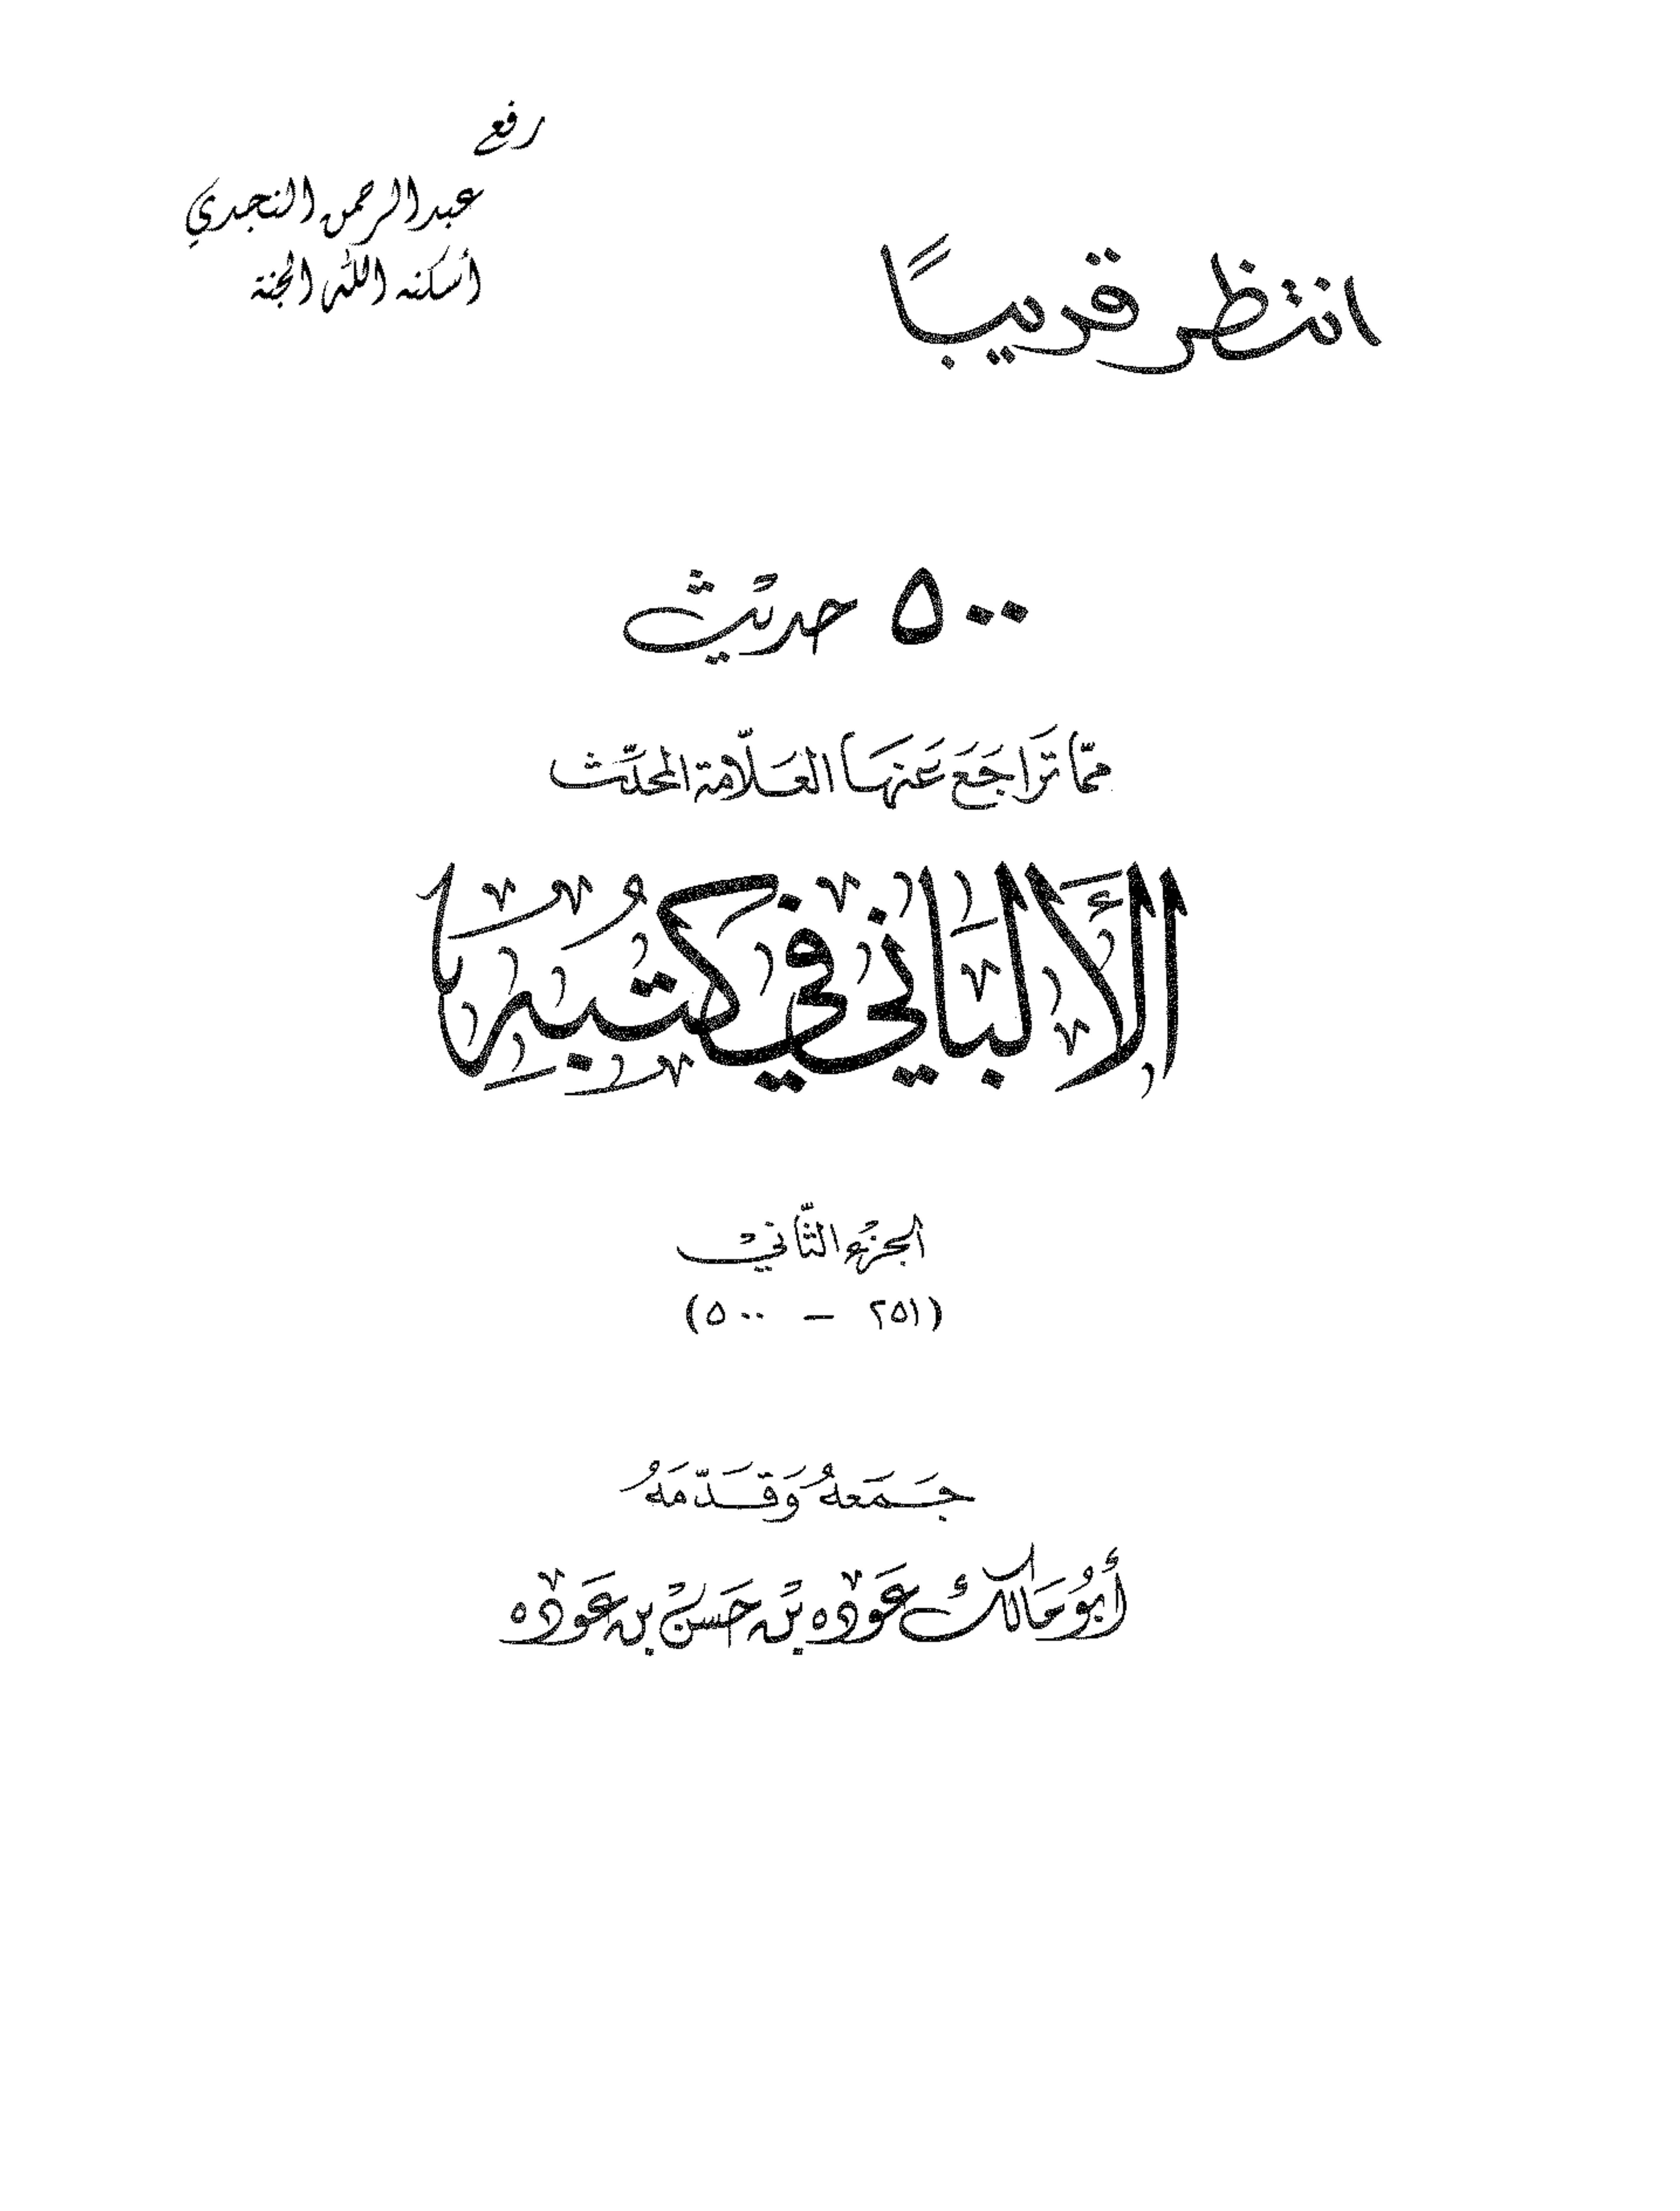 رفع
عبد الرحمن النجدي
أسكنه الله الجنة
انتظر قريبًا
٥٠٠ حديْث
ممّا تَرَاجَعَ عَنهَا العَلّامة المحدّث
الألباني في كتبه
الجزْء الثّانيْ
(٢٥١ – ٥٠٠)
جَمَعهُ وَقَدّمَهُ
أبُو مَالك عَوده بْن حَسنْ بن عَوده